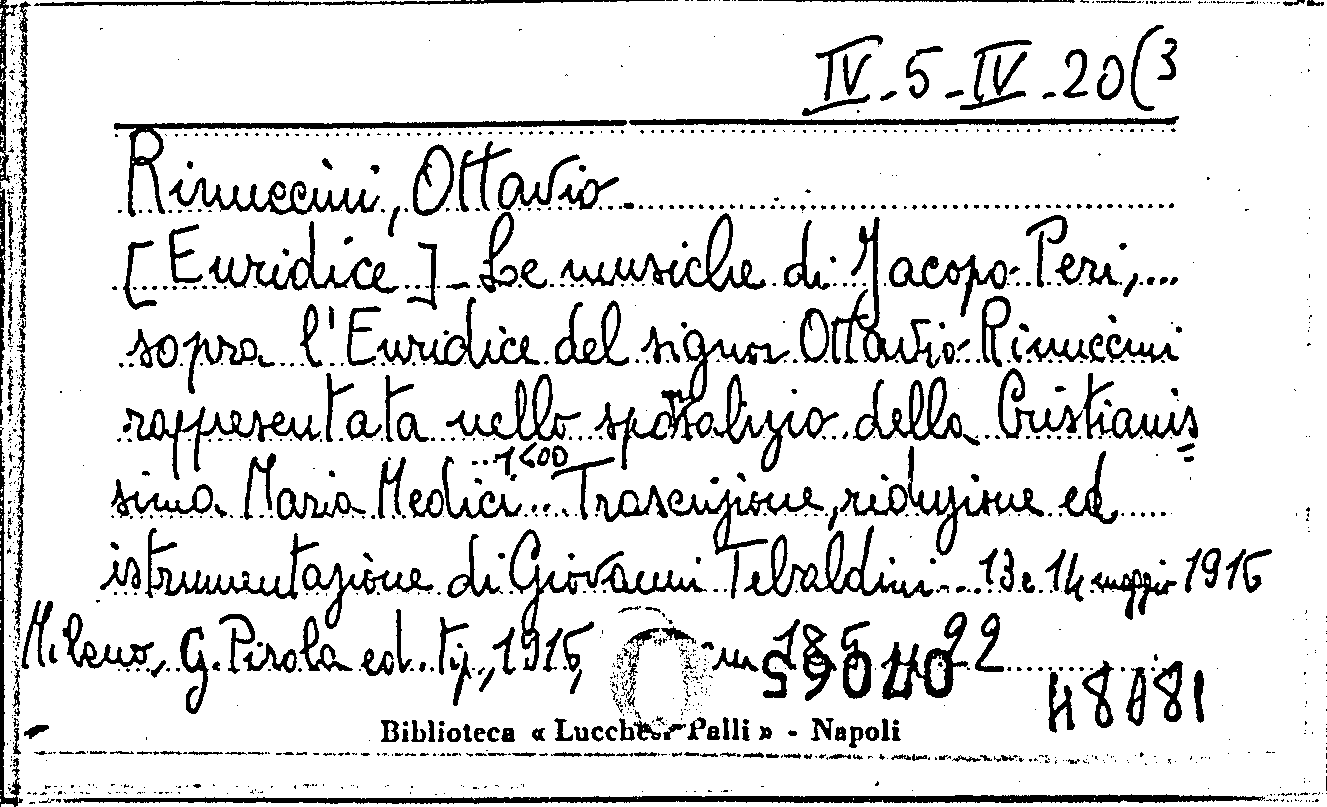 IV-5-IV-20(3
Rinuccini, Ottavio.
[Euridice] - Le musiche di Jacopo Peri,...
sopra l'Euridice del signor Ottavio Rinuccini
rappresentata nello sposalizio della Cristianis=
1600
sima Maria Medici... Trascrizione, riduzione ed
istrumentazione di Giovanni Tebaldini... 13 e 14 maggio 1916
Milano, G. Pirola ed. tip., 1916,
48081
Biblioteca « Lucchesi-Palli » - Napoli